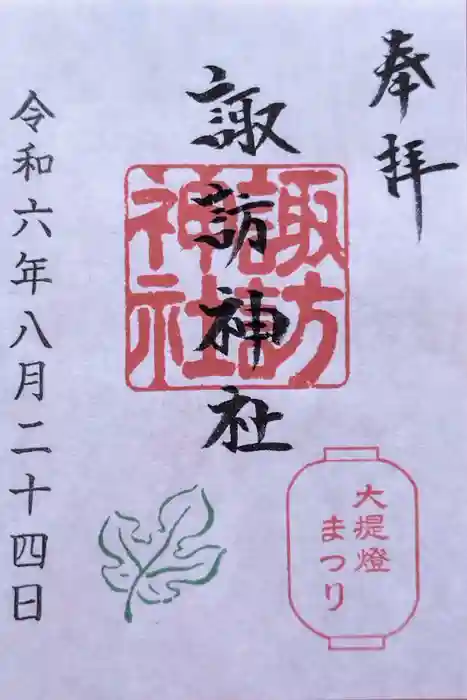 奉拝
諏訪神社
諏訪神社
令和六年八月二十四日
大提燈
まつり